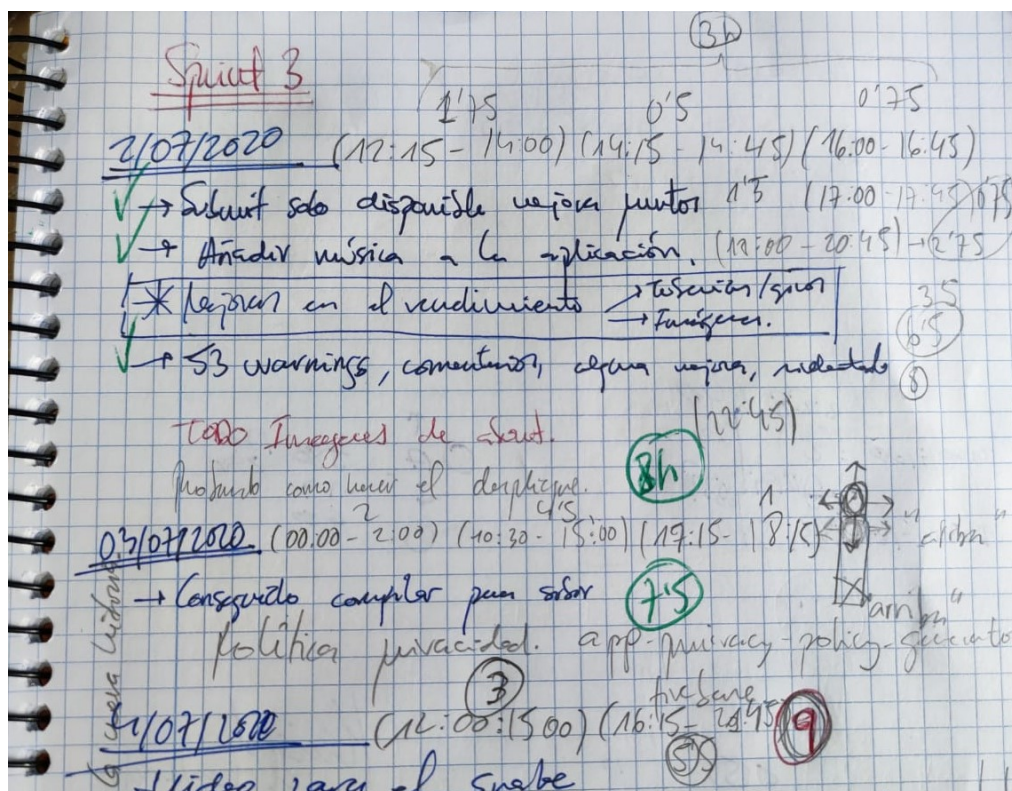 3h
Sprint 3
1'75 0'5 0'75
2/07/2020 (12:15 - 14:00) (14:15 - 14:45) (16:00 - 16:45)
→ Submit solo disponible mejora puntos 1'5 (17:00 - 17:45) 0'75
→ Añadir música a la aplicación. (18:00 - 20:45) → 2'75
* Mejoras en el rendimiento → /giros
→ Imágenes.
3'5
6'5
→ 53 warnings, comentarios, alguna mejora, 8
(22:45)
TODO Imágenes de
Probando como hacer el despliegue. 8h
2 4'5 1
03/07/2020 (00:00 - 2:00) (10:30 - 15:00) (17:15 - 18:15) "arriba"
→ Conseguido compilar para subir 7'5
"arriba"
Política privacidad. app-privacy-policy-generator
3 firebase
4/07/2020 (12:00:15:00) (16:15 - 9
5'5
el
La cueva